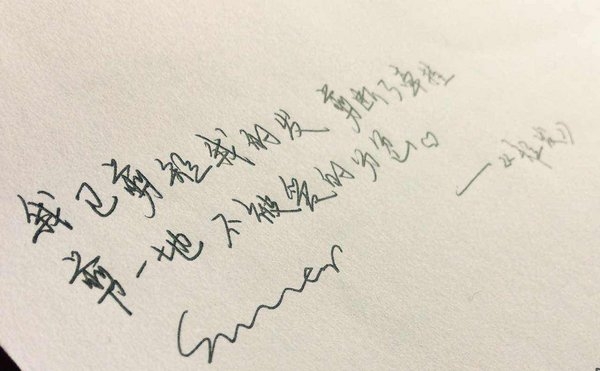 我已剪短我的发 剪断了牵挂
剪一地 不被爱的分
—《短发》
Summer